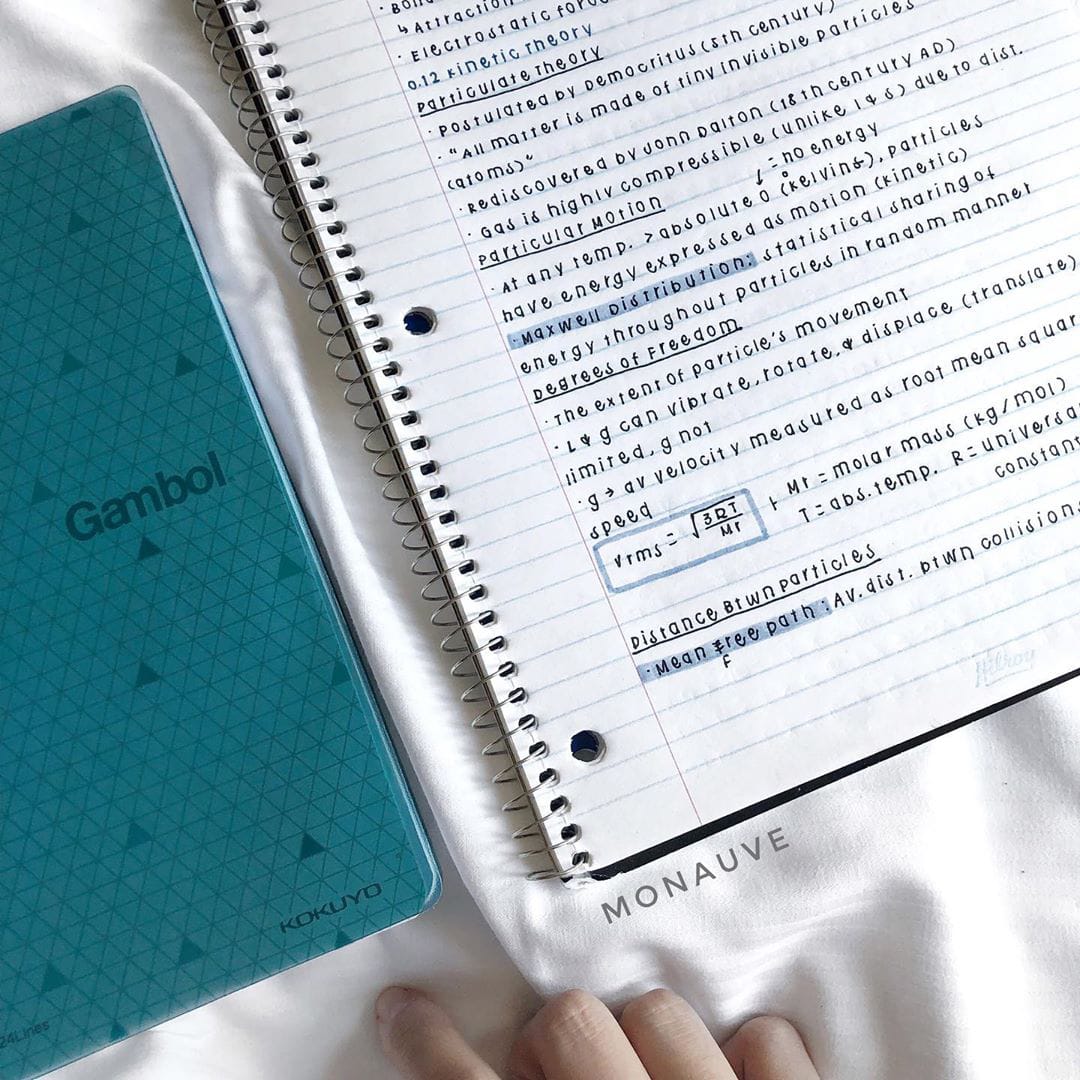 Gambol
KOKUYO
24Lines
↳ Attraction
· Electrostatic
0.12 Kinetic Theory
Particulate Theory
· Postulated by Democritus (5th century)
· "All matter is made of tiny invisible particles
(atoms)"
· Rediscovered by John Dalton (18th century AD)
· Gas is highly compressible (unlike l & s) due to dist.
Particular Motion
↓ = no energy
· At any temp. > absolute 0 (Kelvins), particles
have energy expressed as motion (kinetic)
· Maxwell Distribution: statistical sharing of
energy throughout particles in random manner
Degrees of Freedom
· The extent of particle's movement
· L & g can vibrate, rotate, & displace (translate)
limited, g not
· g → av velocity measured as root mean squar
speed
Vrms = √3RT/Mr
Mr = molar mass (kg/mol)
T = abs. temp. R = universa
constant
Distance Btwn Particles
· Mean free path: Av. dist. btwn collisions
F
Hilroy
MONAUVE